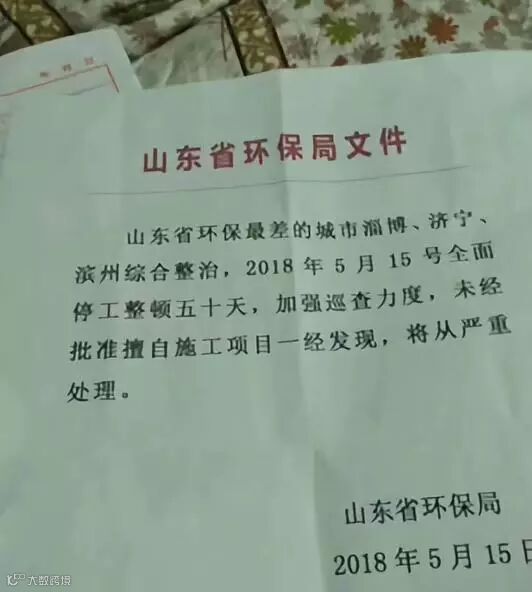 山东省环保局文件
山东省环保最差的城市淄博、济宁、
滨州综合整治，2018年5月15号全面
停工整顿五十天，加强巡查力度，未经
批准擅自施工项目一经发现，将从严重
处理。
山东省环保局
2018年5月15日
大数跨境